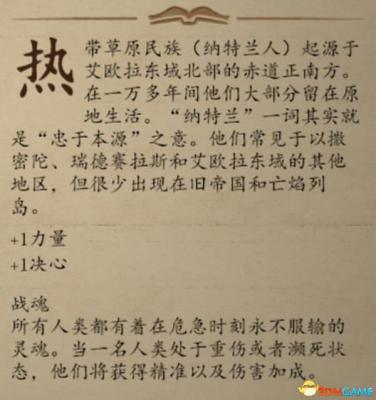 热带草原民族（纳特兰人）起源于
艾欧拉东域北部的赤道正南方。
在一万多年间他们大部分留在原
地生活。“纳特兰”一词其实就
是“忠于本源”之意。他们常见于以撒
密陀、瑞德赛拉斯和艾欧拉东域的其他
地区，但很少出现在旧帝国和亡焰列
岛。
+1力量
+1决心
战魂
所有人类都有着在危急时刻永不服输的
灵魂。当一名人类处于重伤或者濒死状
态，他们将获得精准以及伤害加成。
3DMGAME